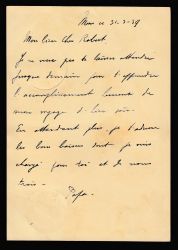 Mon ce 31-3-39
Mon bien Cher Robert
Je ne veux pas te laisser attendre
jusque demain pour t'apprendre
l'accomplissement heureux de
mon voyage
En attendant plus, je t'adresse
les bons baisers dont je suis
chargé pour toi et de nous
trois.
Papa.